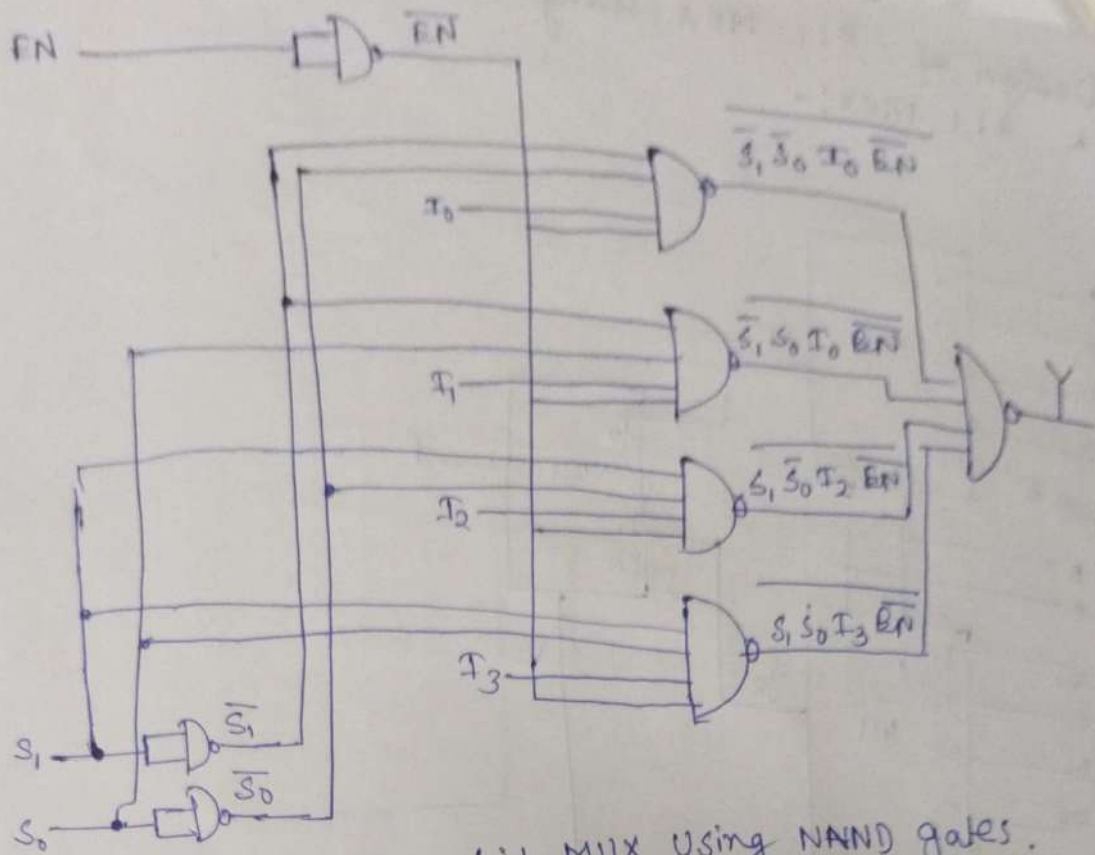 EN
$\overline{EN}$
$\overline{\overline{S}_1 \overline{S}_0 I_0 \overline{EN}}$
I₀
$\overline{\overline{S}_1 S_0 I_0 \overline{EN}}$
I₁
Y
$\overline{S_1 \overline{S}_0 I_2 \overline{EN}}$
I₂
$\overline{S_1 S_0 I_3 \overline{EN}}$
I₃
S₁
$\overline{S_1}$
S₀
$\overline{S_0}$
MUX Using NAND gates.